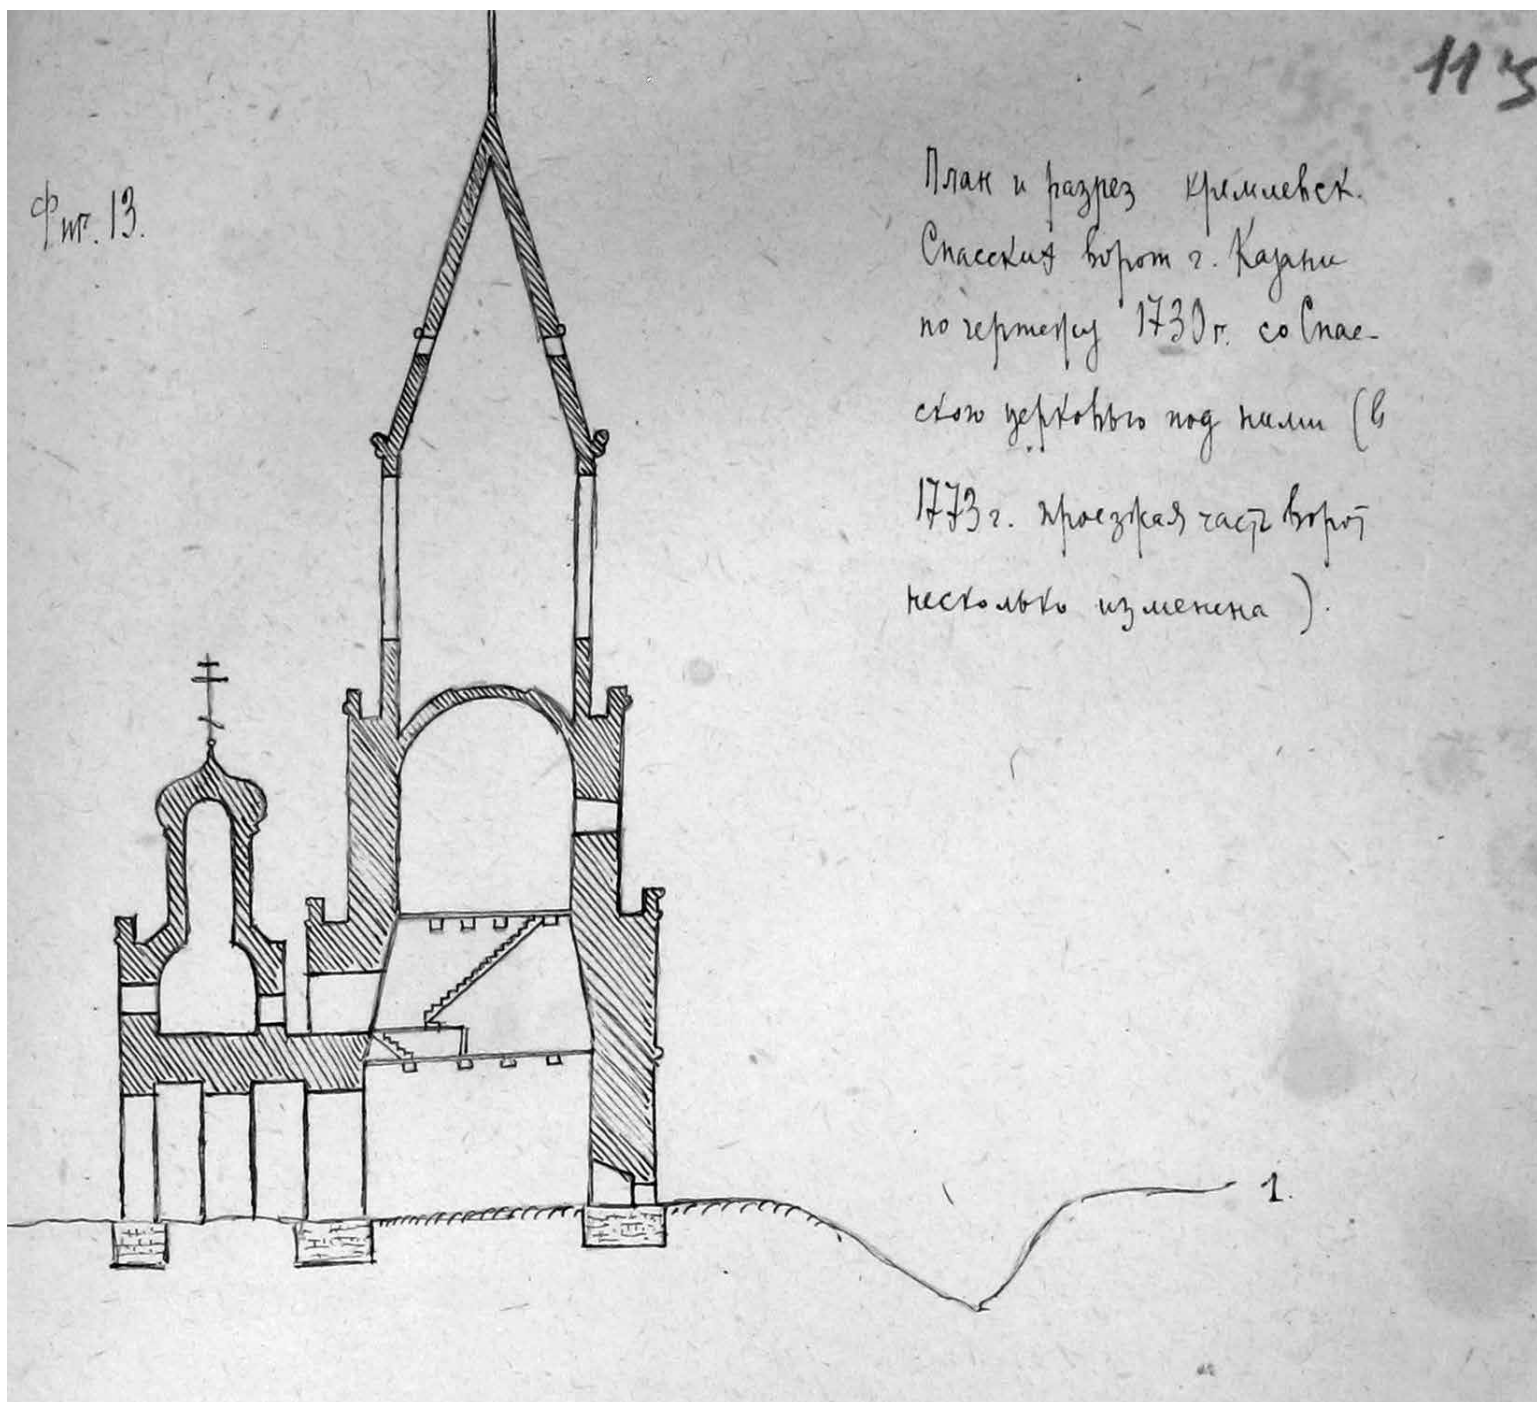 113
Фиг. 13.
План и разрез кремлевск.
Спасских ворот г. Казани
по чертежу 1730 г. со Спас-
скою церковью под ними (в
1773 г. проезжая часть ворот
несколько изменена).
1.